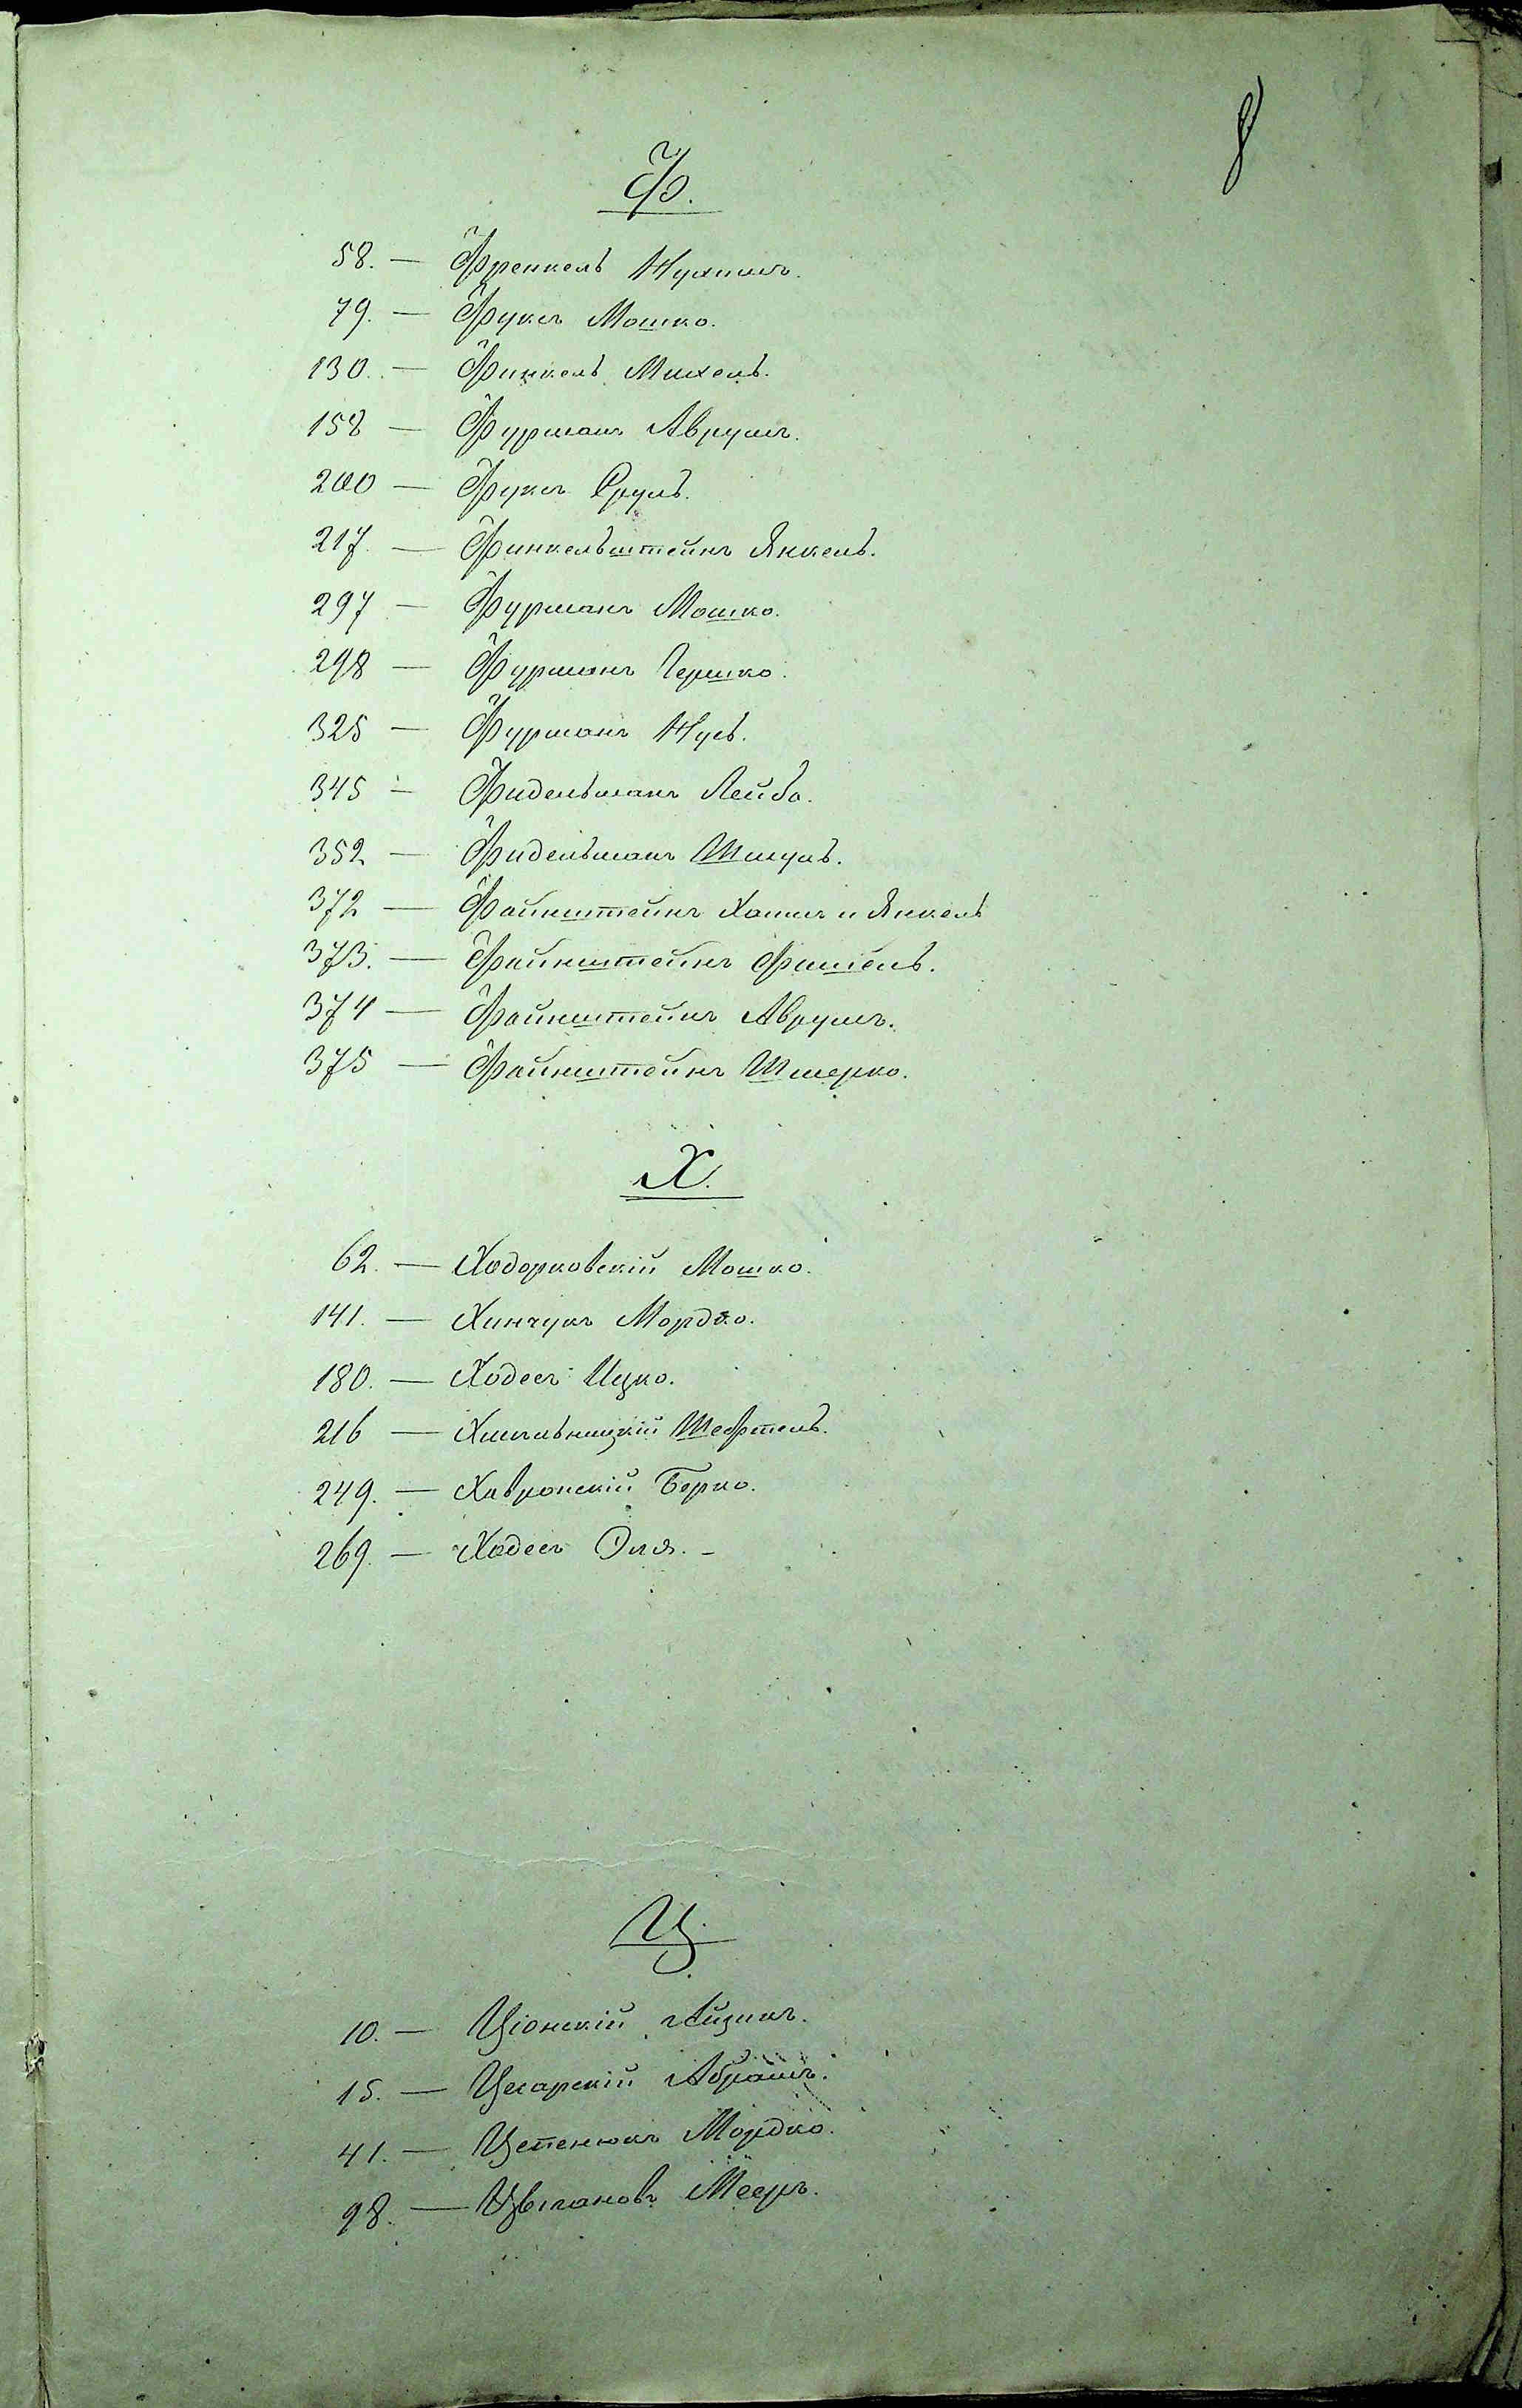 8
Ф.
58. — Френкель Нухимъ.
79. — Фуксъ Мошко.
130. — Финкель Михель.
158 — Фурманъ Аврумъ.
200 — Фуксъ Сруль.
217. — Финкельштейнъ Янкель.
297 — Фурманъ Мошко.
298 — Фурманъ Гершко.
325 — Фурманъ Нусь.
345 — Фидельманъ Лейба.
352 — Фидельманъ Шмуль.
372 — Файнштейнъ Хаимъ и Янкель
373. — Файнштейнъ Фишель.
374 — Файнштейнъ Аврумъ.
375 — Файнштейнъ Шмерко.
Х.
62. — Ходорковскій Мошко.
141. — Хинчукъ Мордко.
180. — Ходесъ Ицко.
216 — Хмѣльницкій Шефтель.
249. — Хавронскій Берко.
269. — Ходесъ Эля. –
Ц.
10. — Ціонскій Айзикъ.
15. — Цесарскій Абрамъ.
41. — Цепенюкъ Мордко.
98. — Цыгановъ Мееръ.